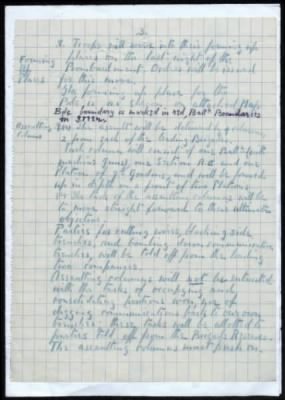 3.
Troops will move into their forming up
places on the last night of the
Bombardment. Orders will be issued
for this move.
Forming up places
The forming up place for the
is as shown on attached Map.
Bde boundary is marked in red Batt. Boundaries
in green.
Assaulting Columns
The assault will be delivered by
2 from each of the leading
Each column will consist of one Batt. (with
machine guns), one Section R.E and one
Platoon of Gordons, and will be formed
up in depth on a front of two Platoons.
The task of the assaulting columns will be
to move straight forward to their ultimate
objective.
Parties for cutting wires, blocking side
trenches, and bombing down communication
trenches, will be told off from the leading
companies.
Assaulting columns will not be entrusted
with the tasks of occupying and
consolidating positions won, nor of
digging communications back to our own
trenches; these tasks will be allotted to
parties told off from the Brigade Reserve.
The assaulting columns must push on